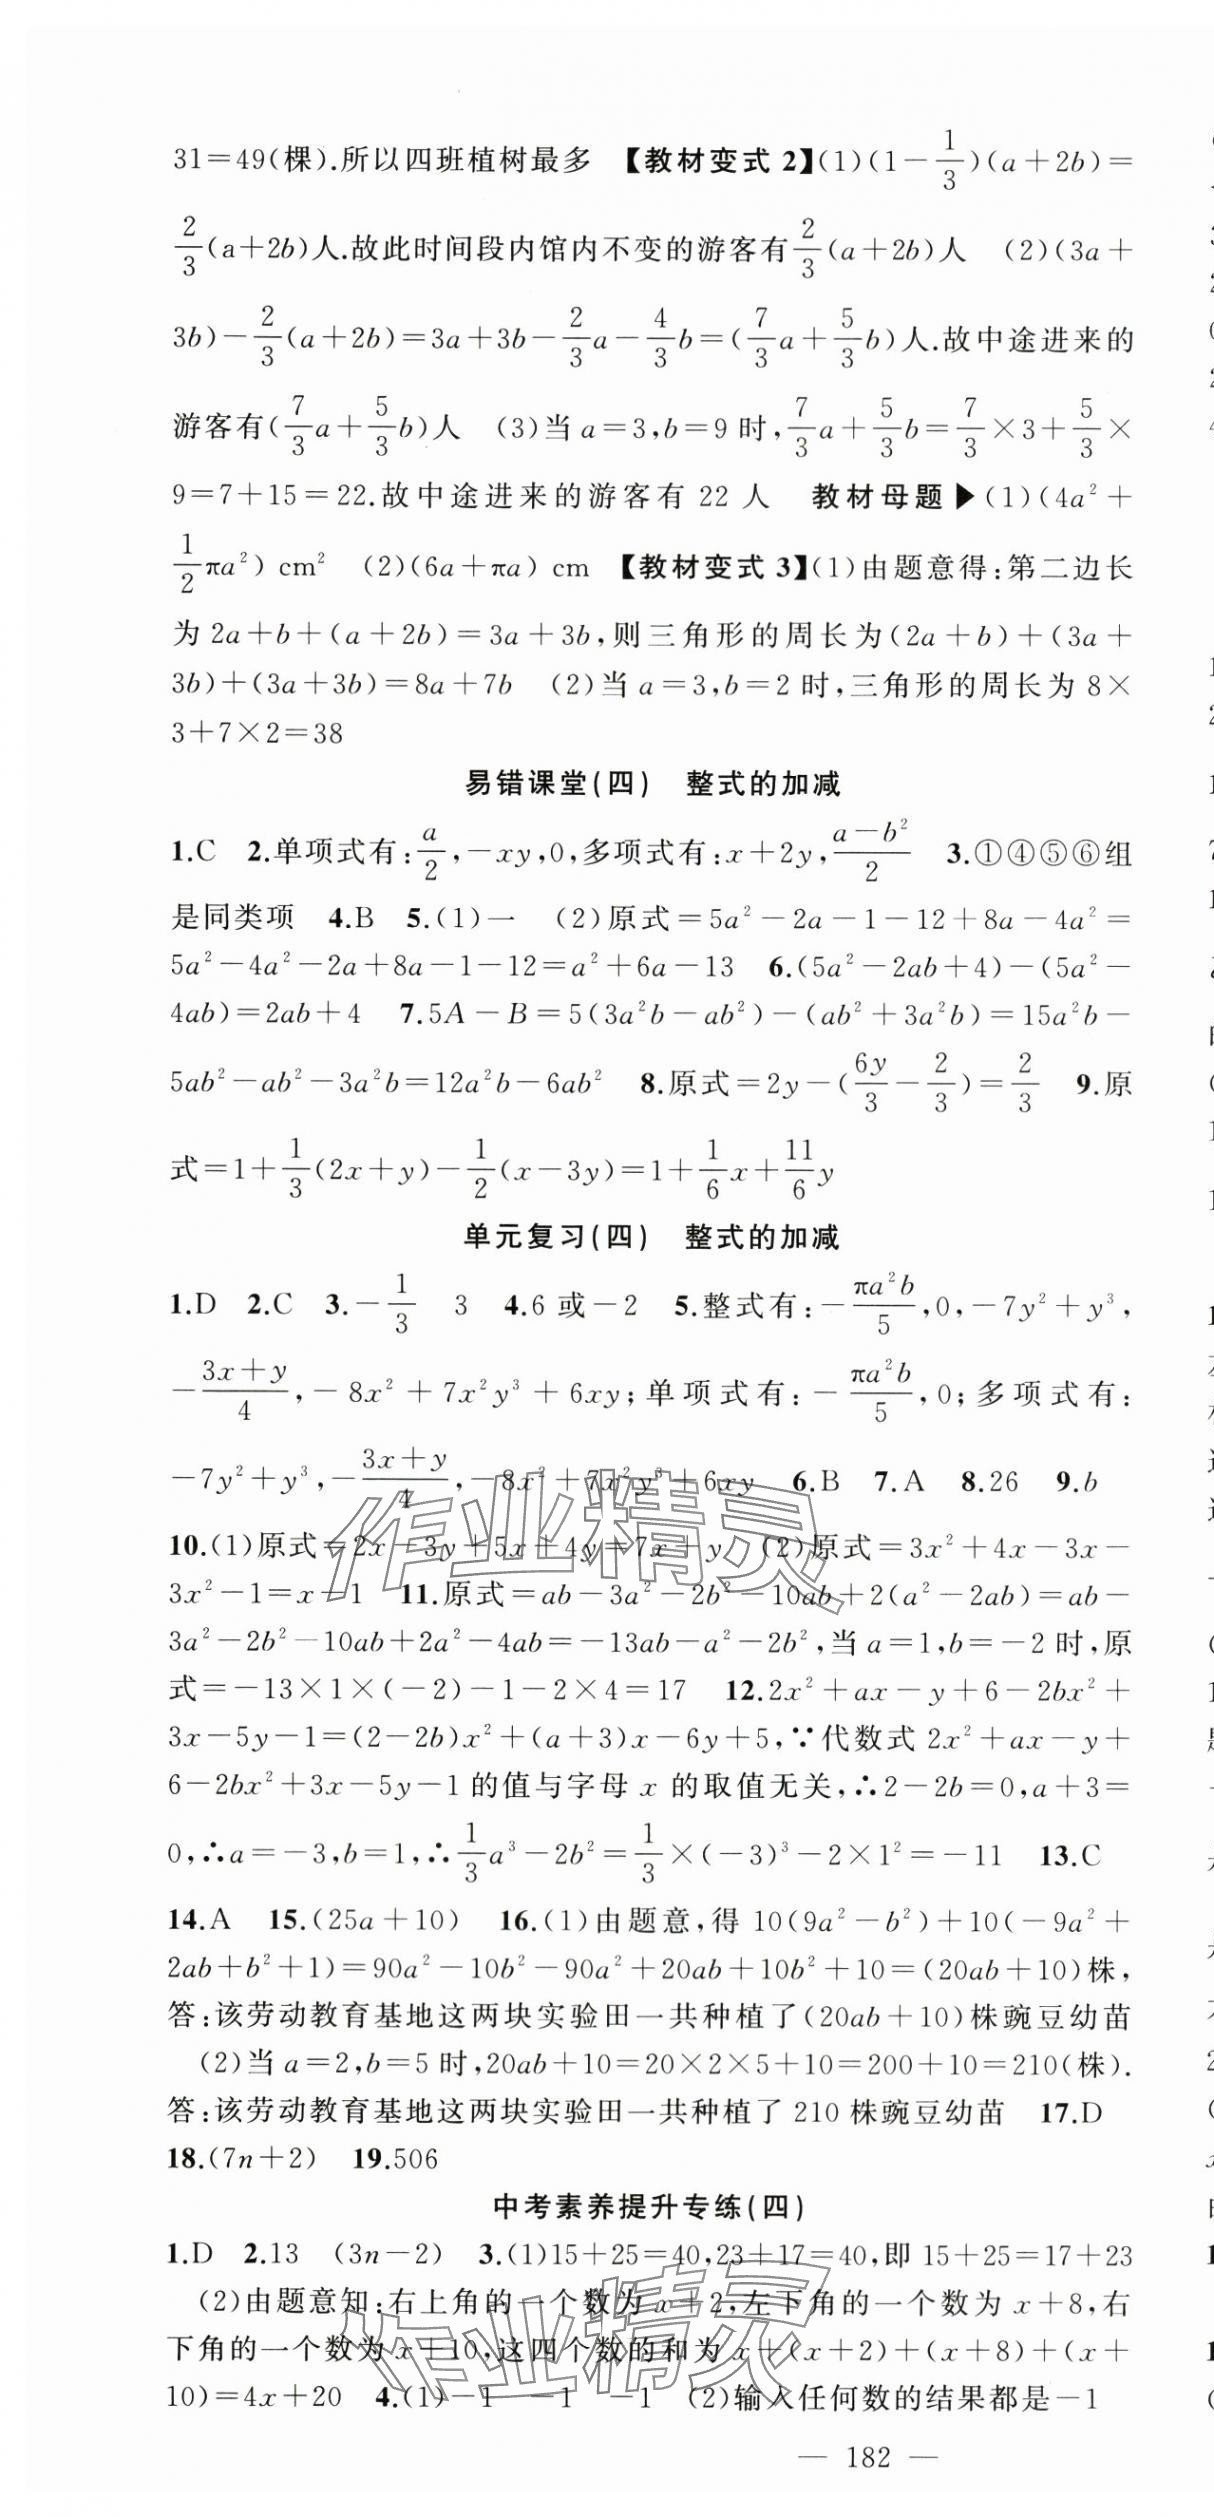 31=49(棵).所以四班植树最多 【教材变式 2】(1)(1-1/3)(a+2b)=
2/3(a+2b)人.故此时间段内馆内不变的游客有2/3(a+2b)人 (2)(3a+
3b)-2/3(a+2b)=3a+3b-2/3a-4/3b=(7/3a+5/3b)人.故中途进来的
游客有(7/3a+5/3b)人 (3)当 a=3,b=9 时,7/3a+5/3b=7/3×3+5/3×
9=7+15=22.故中途进来的游客有 22 人 教材母题▶(1)(4a²+
1/2πa²) cm² (2)(6a+πa) cm 【教材变式 3】(1)由题意得:第二边长
为 2a+b+(a+2b)=3a+3b,则三角形的周长为(2a+b)+(3a+
3b)+(3a+3b)=8a+7b (2)当 a=3,b=2 时,三角形的周长为 8×
3+7×2=38
易错课堂(四) 整式的加减
1.C 2.单项式有:a/2,-xy,0,多项式有:x+2y,(a-b²)/2 3.①④⑤⑥组
是同类项 4.B 5.(1)一 (2)原式=5a²-2a-1-12+8a-4a²=
5a²-4a²-2a+8a-1-12=a²+6a-13 6.(5a²-2ab+4)-(5a²-
4ab)=2ab+4 7.5A-B=5(3a²b-ab²)-(ab²+3a²b)=15a²b-
5ab²-ab²-3a²b=12a²b-6ab² 8.原式=2y-(6y/3-2/3)=2/3 9.原
式=1+1/3(2x+y)-1/2(x-3y)=1+1/6x+11/6y
单元复习(四) 整式的加减
1.D 2.C 3.-1/3 3 4.6 或-2 5.整式有:-πa²b/5,0,-7y²+y³,
-(3x+y)/4,-8x²+7x²y³+6xy;单项式有:-πa²b/5,0;多项式有:
-7y²+y³,-(3x+y)/4,-8x²+7x²y³+6xy 6.B 7.A 8.26 9.b
10.(1)原式=2x-3y+5x+4y=7x+y (2)原式=3x²+4x-3x-
3x²-1=x-1 11.原式=ab-3a²-2b²-10ab+2(a²-2ab)=ab-
3a²-2b²-10ab+2a²-4ab=-13ab-a²-2b²,当 a=1,b=-2 时,原
式=-13×1×(-2)-1-2×4=17 12.2x²+ax-y+6-2bx²+
3x-5y-1=(2-2b)x²+(a+3)x-6y+5,∵代数式 2x²+ax-y+
6-2bx²+3x-5y-1 的值与字母 x 的取值无关,∴2-2b=0,a+3=
0,∴a=-3,b=1,∴1/3a³-2b²=1/3×(-3)³-2×1²=-11 13.C
14.A 15.(25a+10) 16.(1)由题意,得 10(9a²-b²)+10(-9a²+
2ab+b²+1)=90a²-10b²-90a²+20ab+10b²+10=(20ab+10)株,
答:该劳动教育基地这两块实验田一共种植了(20ab+10)株豌豆幼苗
(2)当 a=2,b=5 时,20ab+10=20×2×5+10=200+10=210(株).
答:该劳动教育基地这两块实验田一共种植了 210 株豌豆幼苗 17.D
18.(7n+2) 19.506
中考素养提升专练(四)
1.D 2.13 (3n-2) 3.(1)15+25=40,23+17=40,即 15+25=17+23
(2)由题意知:右上角的一个数为 x+2,左下角的一个数为 x+8,右
下角的一个数为 x+10,这四个数的和为 x+(x+2)+(x+8)+(x+
10)=4x+20 4.(1)-1 -1 -1 (2)输入任何数的结果都是-1
作业精灵
作业精灵
— 182 —